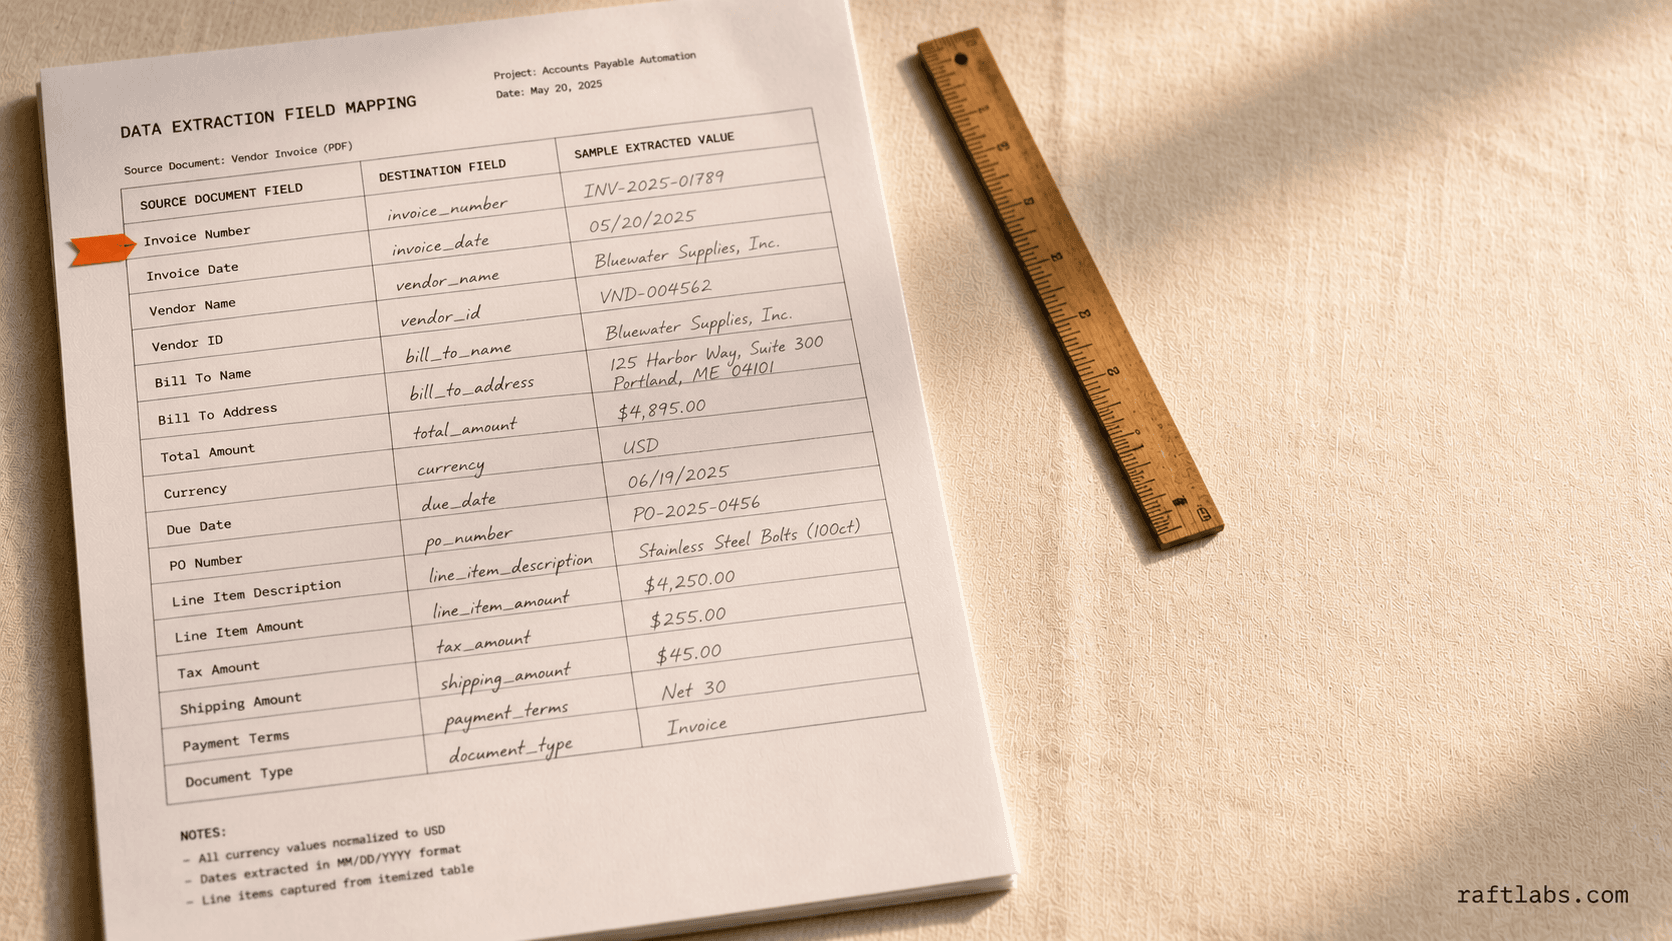 Project: Accounts Payable Automation
Date: May 20, 2025
DATA EXTRACTION FIELD MAPPING
Source Document: Vendor Invoice (PDF)
SOURCE DOCUMENT FIELD DESTINATION FIELD SAMPLE EXTRACTED VALUE
Invoice Number invoice_number INV-2025-01789
Invoice Date invoice_date 05/20/2025
Vendor Name vendor_name Bluewater Supplies, Inc.
Vendor ID vendor_id VND-004562
Bill To Name bill_to_name Bluewater Supplies, Inc.
Bill To Address bill_to_address 125 Harbor Way, Suite 300
Portland, ME 04101
Total Amount total_amount $4,895.00
Currency currency USD
Due Date due_date 06/19/2025
PO Number po_number PO-2025-0456
Line Item Description line_item_description Stainless Steel Bolts (100ct)
Line Item Amount line_item_amount $4,250.00
Tax Amount tax_amount $255.00
Shipping Amount shipping_amount $45.00
Payment Terms payment_terms Net 30
Document Type document_type Invoice
NOTES:
- All currency values normalized to USD
- Dates extracted in MM/DD/YYYY format
- Line items captured from itemized table
raftlabs.com